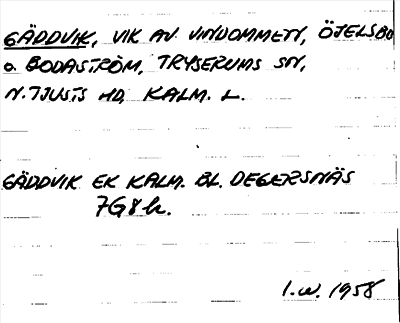 GÄDDVIK, VIK AV VINDOMMEN, ÖJELSBO
O. BODASTRÖM, TRYSERUMS SN,
N. TJUSTS HD, KALM. L.
GÄDDVIK EK KALM. BL. DEGERSNÄS
7G8h.
I.W. 1958